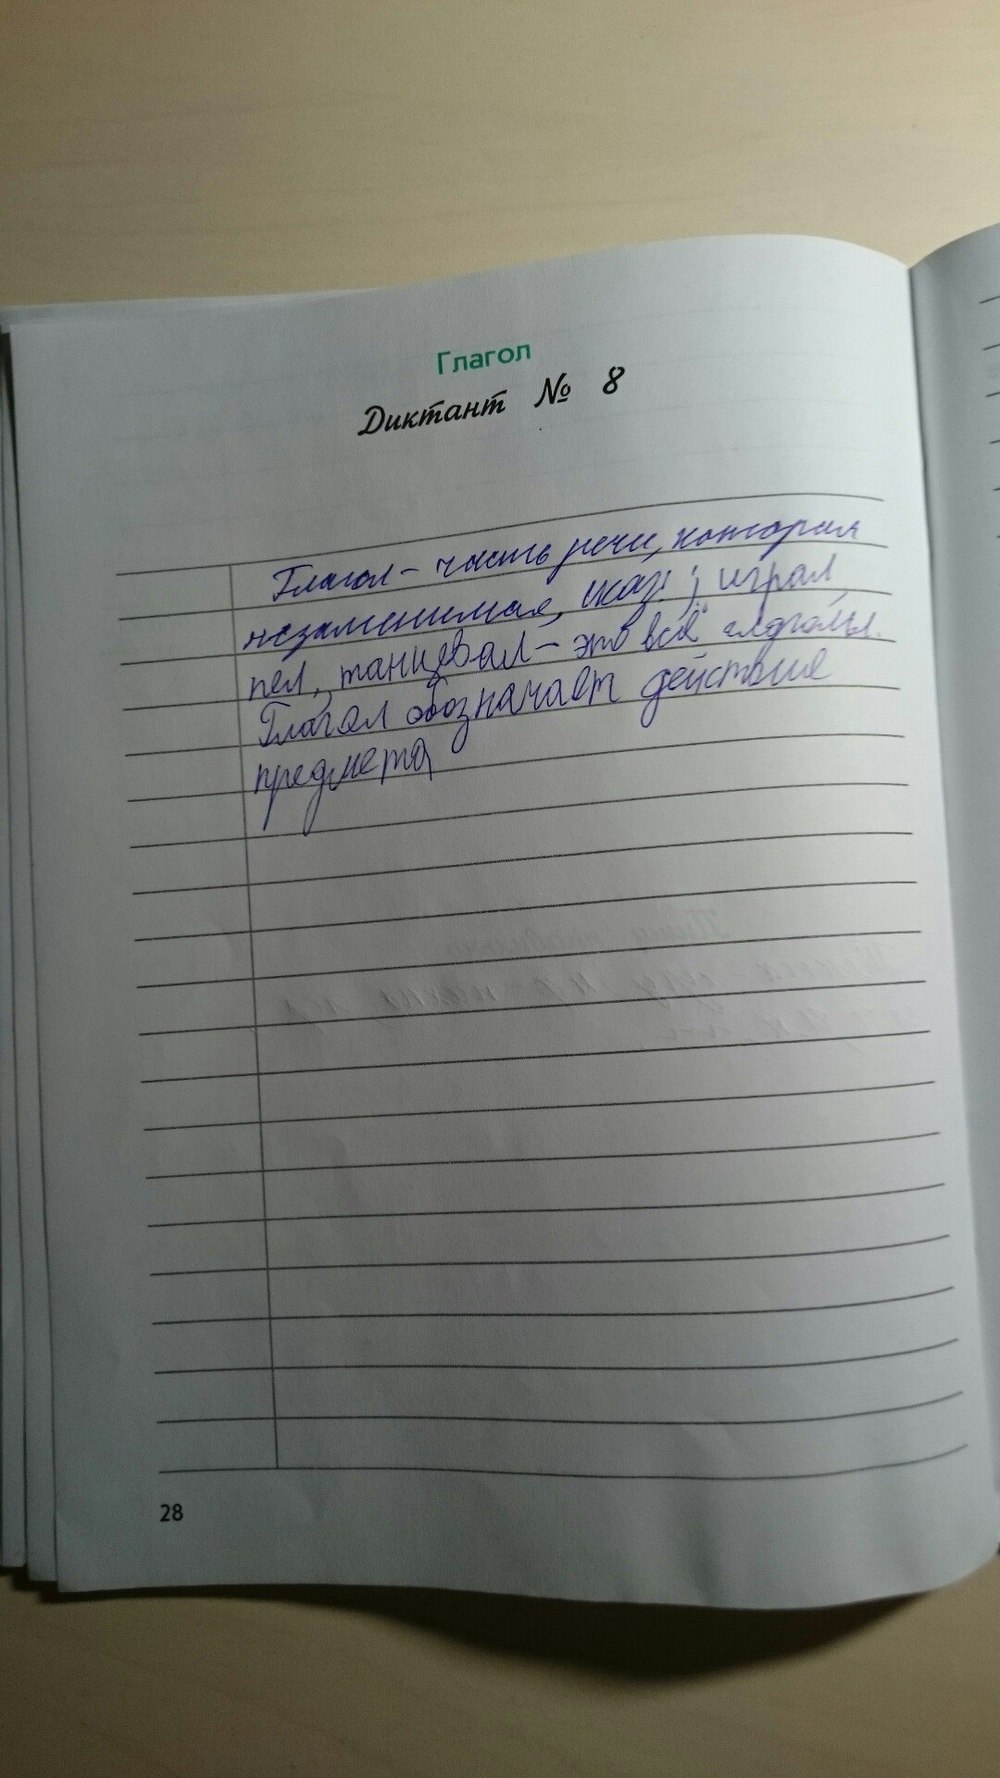 Глагол
Диктант № 8
Глагол – часть речи, которая
незаменимая, играл,
пел, танцевал – это всё глаголы.
Глагол обозначает действие
предмета
28